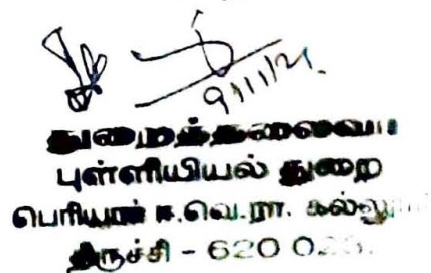 9/11/21.
துறைத்தலைவர்
புள்ளியியல் துறை
பெரியார் ஈ.வெ.ரா. கல்லூ
திருச்சி - 620 023.